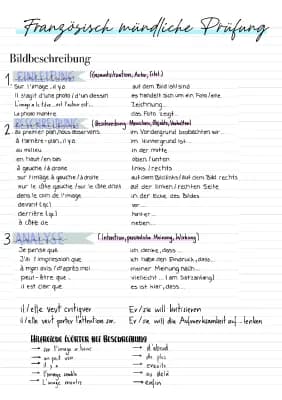 Französisch mündliche Prüfung
Bildbeschreibung
1. EINLEITUNG (Gesamtsituation, Autor, Titel)
Sur l'image, il y a auf dem Bild ist/sind
Il s'agit d'une photo / d'un dessin es handelt sich um ein Foto/eine Zeichnung...
La photo montre das Foto zeigt...
2. BESCHREIBUNG (Beschreibung: Menschen, Objekte, Verhalten)
au premier plan/nous observons im Vordergrund beobachten wir...
à l'arrière-plan, il y a im Hintergrund ist...
au milieu in der Mitte
en haut/en bas oben/unten
à gauche/à droite links/rechts
sur l'image à gauche/à droite auf dem Bild links/auf dem Bild rechts
sur le côté gauche/sur le côté droit auf der linken/rechten Seite
dans le coin de l'image in der Ecke des Bildes
devant (qc) vor...
derrière (qc) hinter...
à côté de neben...
3. ANALYSE (Intention, persönliche Meinung, Wirkung)
Je pense que ich denke, dass...
J'ai l'impression que ich habe den Eindruck, dass...
à mon avis/d'après moi meiner Meinung nach...
peut-être que... vielleicht... (am Satzanfang)
il est clair que es ist klar, dass...
il/elle veut critiquer Er/sie will kritisieren
il/elle veut porter l'attention sur Er/sie will die Aufmerksamkeit auf... lenken
HILFREICHE WÖRTER BEI BESCHREIBUNG
→ d'abord
→ on peut voir → de plus
→ il y a → ensuite
→ l'image semble → au delà
→ L'image montre → enfin